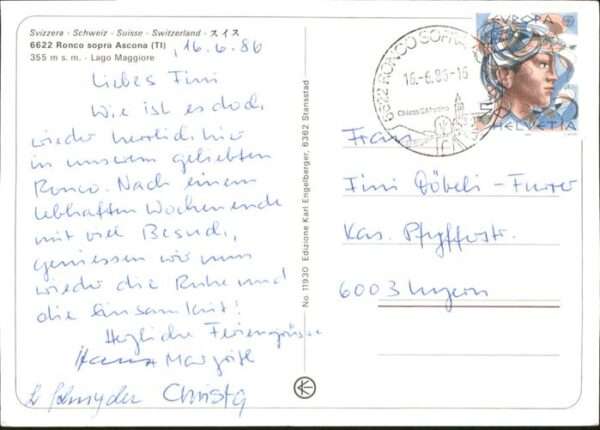 Svizzera · Schweiz · Suisse · Switzerland · スイス
6622 Ronco sopra Ascona (TI)
355 m s. m. · Lago Maggiore
16.6.86
Liebes Fini
Wie ist es doch
wieder herrlich hier
in unserem geliebten
Ronco. Nach einem
lebhaften Wochenende
mit viel Besuch,
geniessen wir nun
wieder die Ruhe und
die Einsamkeit!
Herzliche Feriengrüsse
Hans Margrith
Schnyder Christa
No. 11930 Edizione Karl Engelberger, 6362 Stansstad
6622 RONCO SOPRA
16.-6.86-16
EUROPA
HELVETIA
Frau
Fini Döbeli-Furrer
Kas. Pfyfferstr.
6003 Luzern